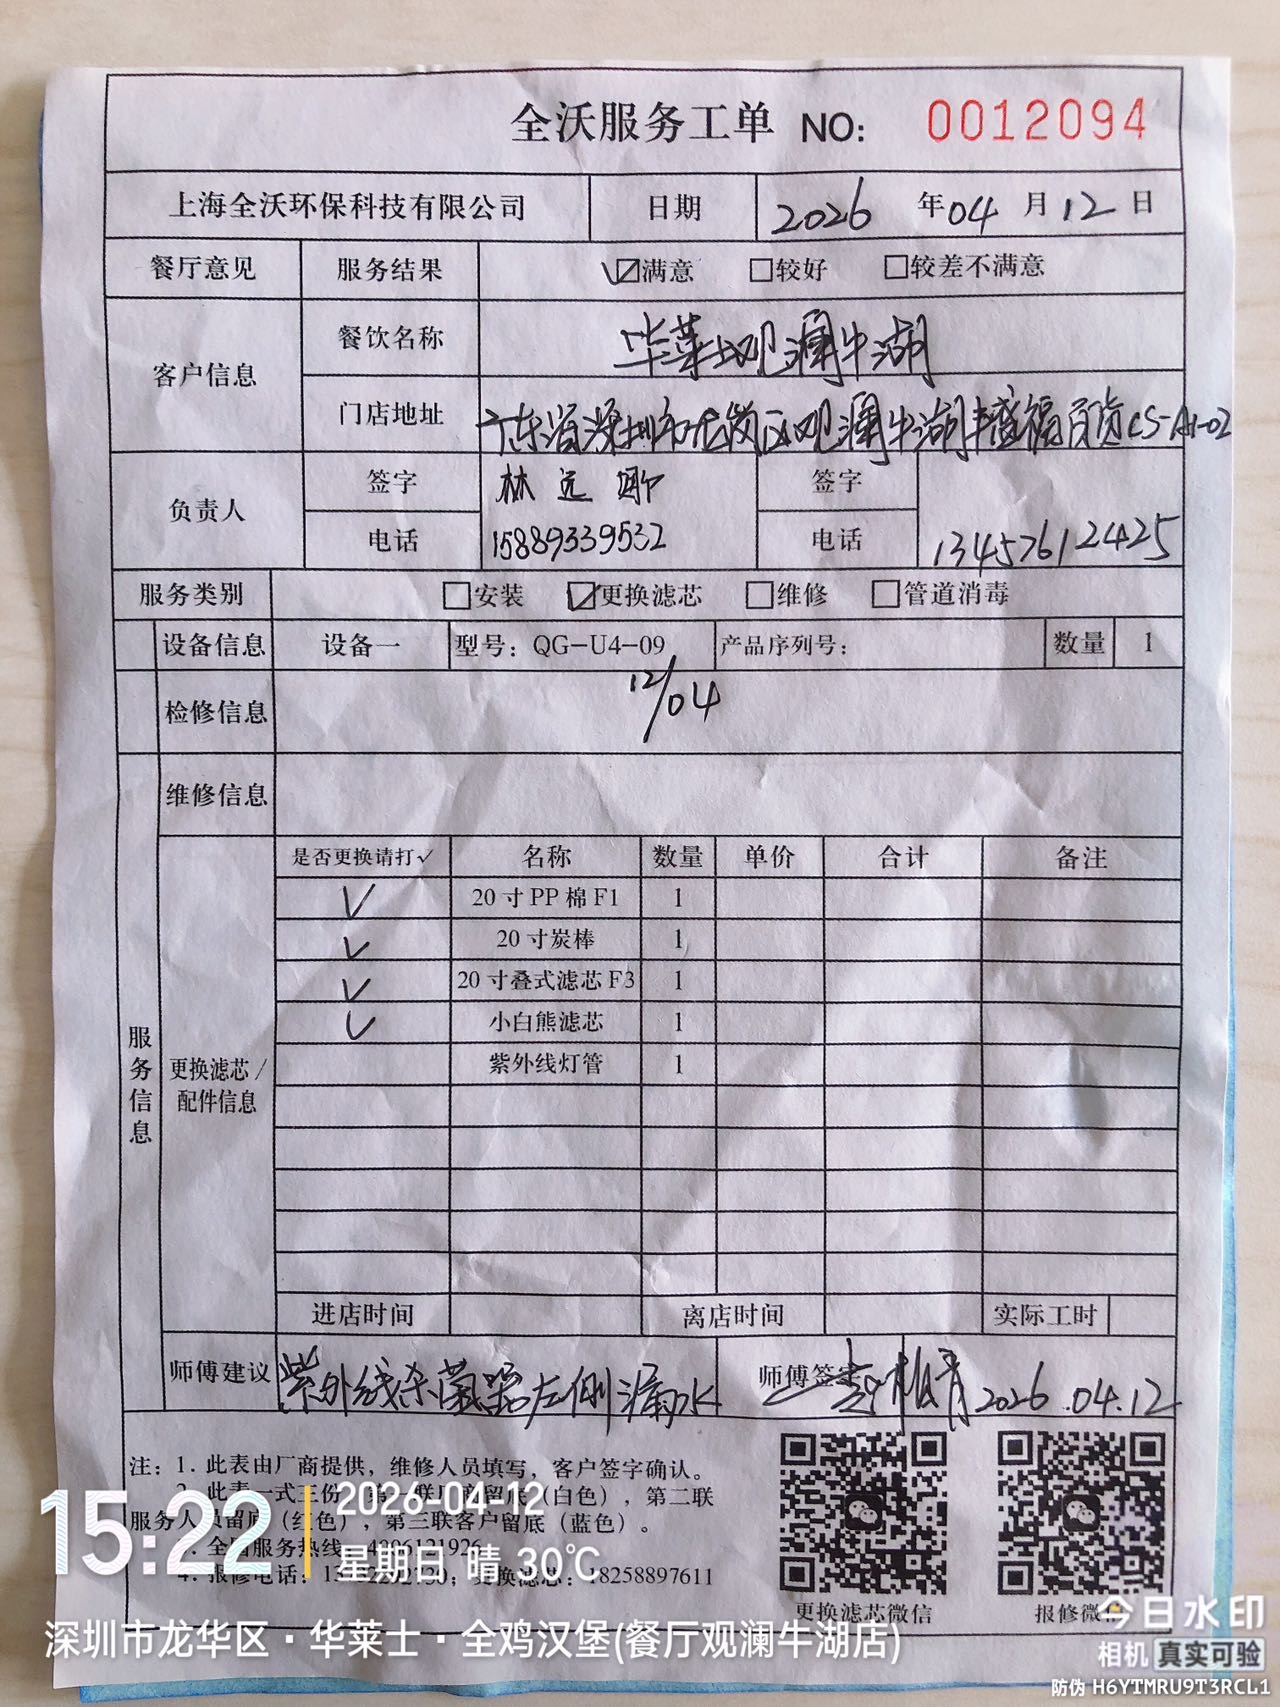 全沃服务工单 NO: 0012094
上海全沃环保科技有限公司 日期 2026 年 04 月 12 日
餐厅意见 服务结果 ☑满意 □较好 □较差不满意
客户信息 餐饮名称 华莱士观澜牛湖
门店地址 广东省深圳市龙岗区观澜牛湖丰盛福百货CS-A1-02
负责人 签字 林远 签字
电话 15889339532 电话 13457612425
服务类别 □安装 ☑更换滤芯 □维修 □管道消毒
设备信息 设备一 型号: QG-U4-09 产品序列号: 数量 1
检修信息 12/04
维修信息
服务信息
更换滤芯/配件信息
是否更换请打✓ 名称 数量 单价 合计 备注
✓ 20寸PP棉F1 1
✓ 20寸炭棒 1
✓ 20寸叠式滤芯F3 1
✓ 小白熊滤芯 1
紫外线灯管 1
进店时间 离店时间 实际工时
师傅建议 紫外线杀菌器左侧漏水 师傅签 2026.04.12
注: 1. 此表由厂商提供, 维修人员填写, 客户签字确认。
2. 此表一式三份, 第一联厂商留底(白色), 第二联
服务人员留底(红色), 第三联客户留底(蓝色)。
3. 全国服务热线: 4006121926
4. 报修电话: 更换滤芯: 18258897611
更换滤芯微信 报修微信
15:22 2026-04-12
星期日 晴 30℃
深圳市龙华区·华莱士·全鸡汉堡(餐厅观澜牛湖店)
今日水印
相机 真实可验
防伪 H6YTMRU9T3RCL1